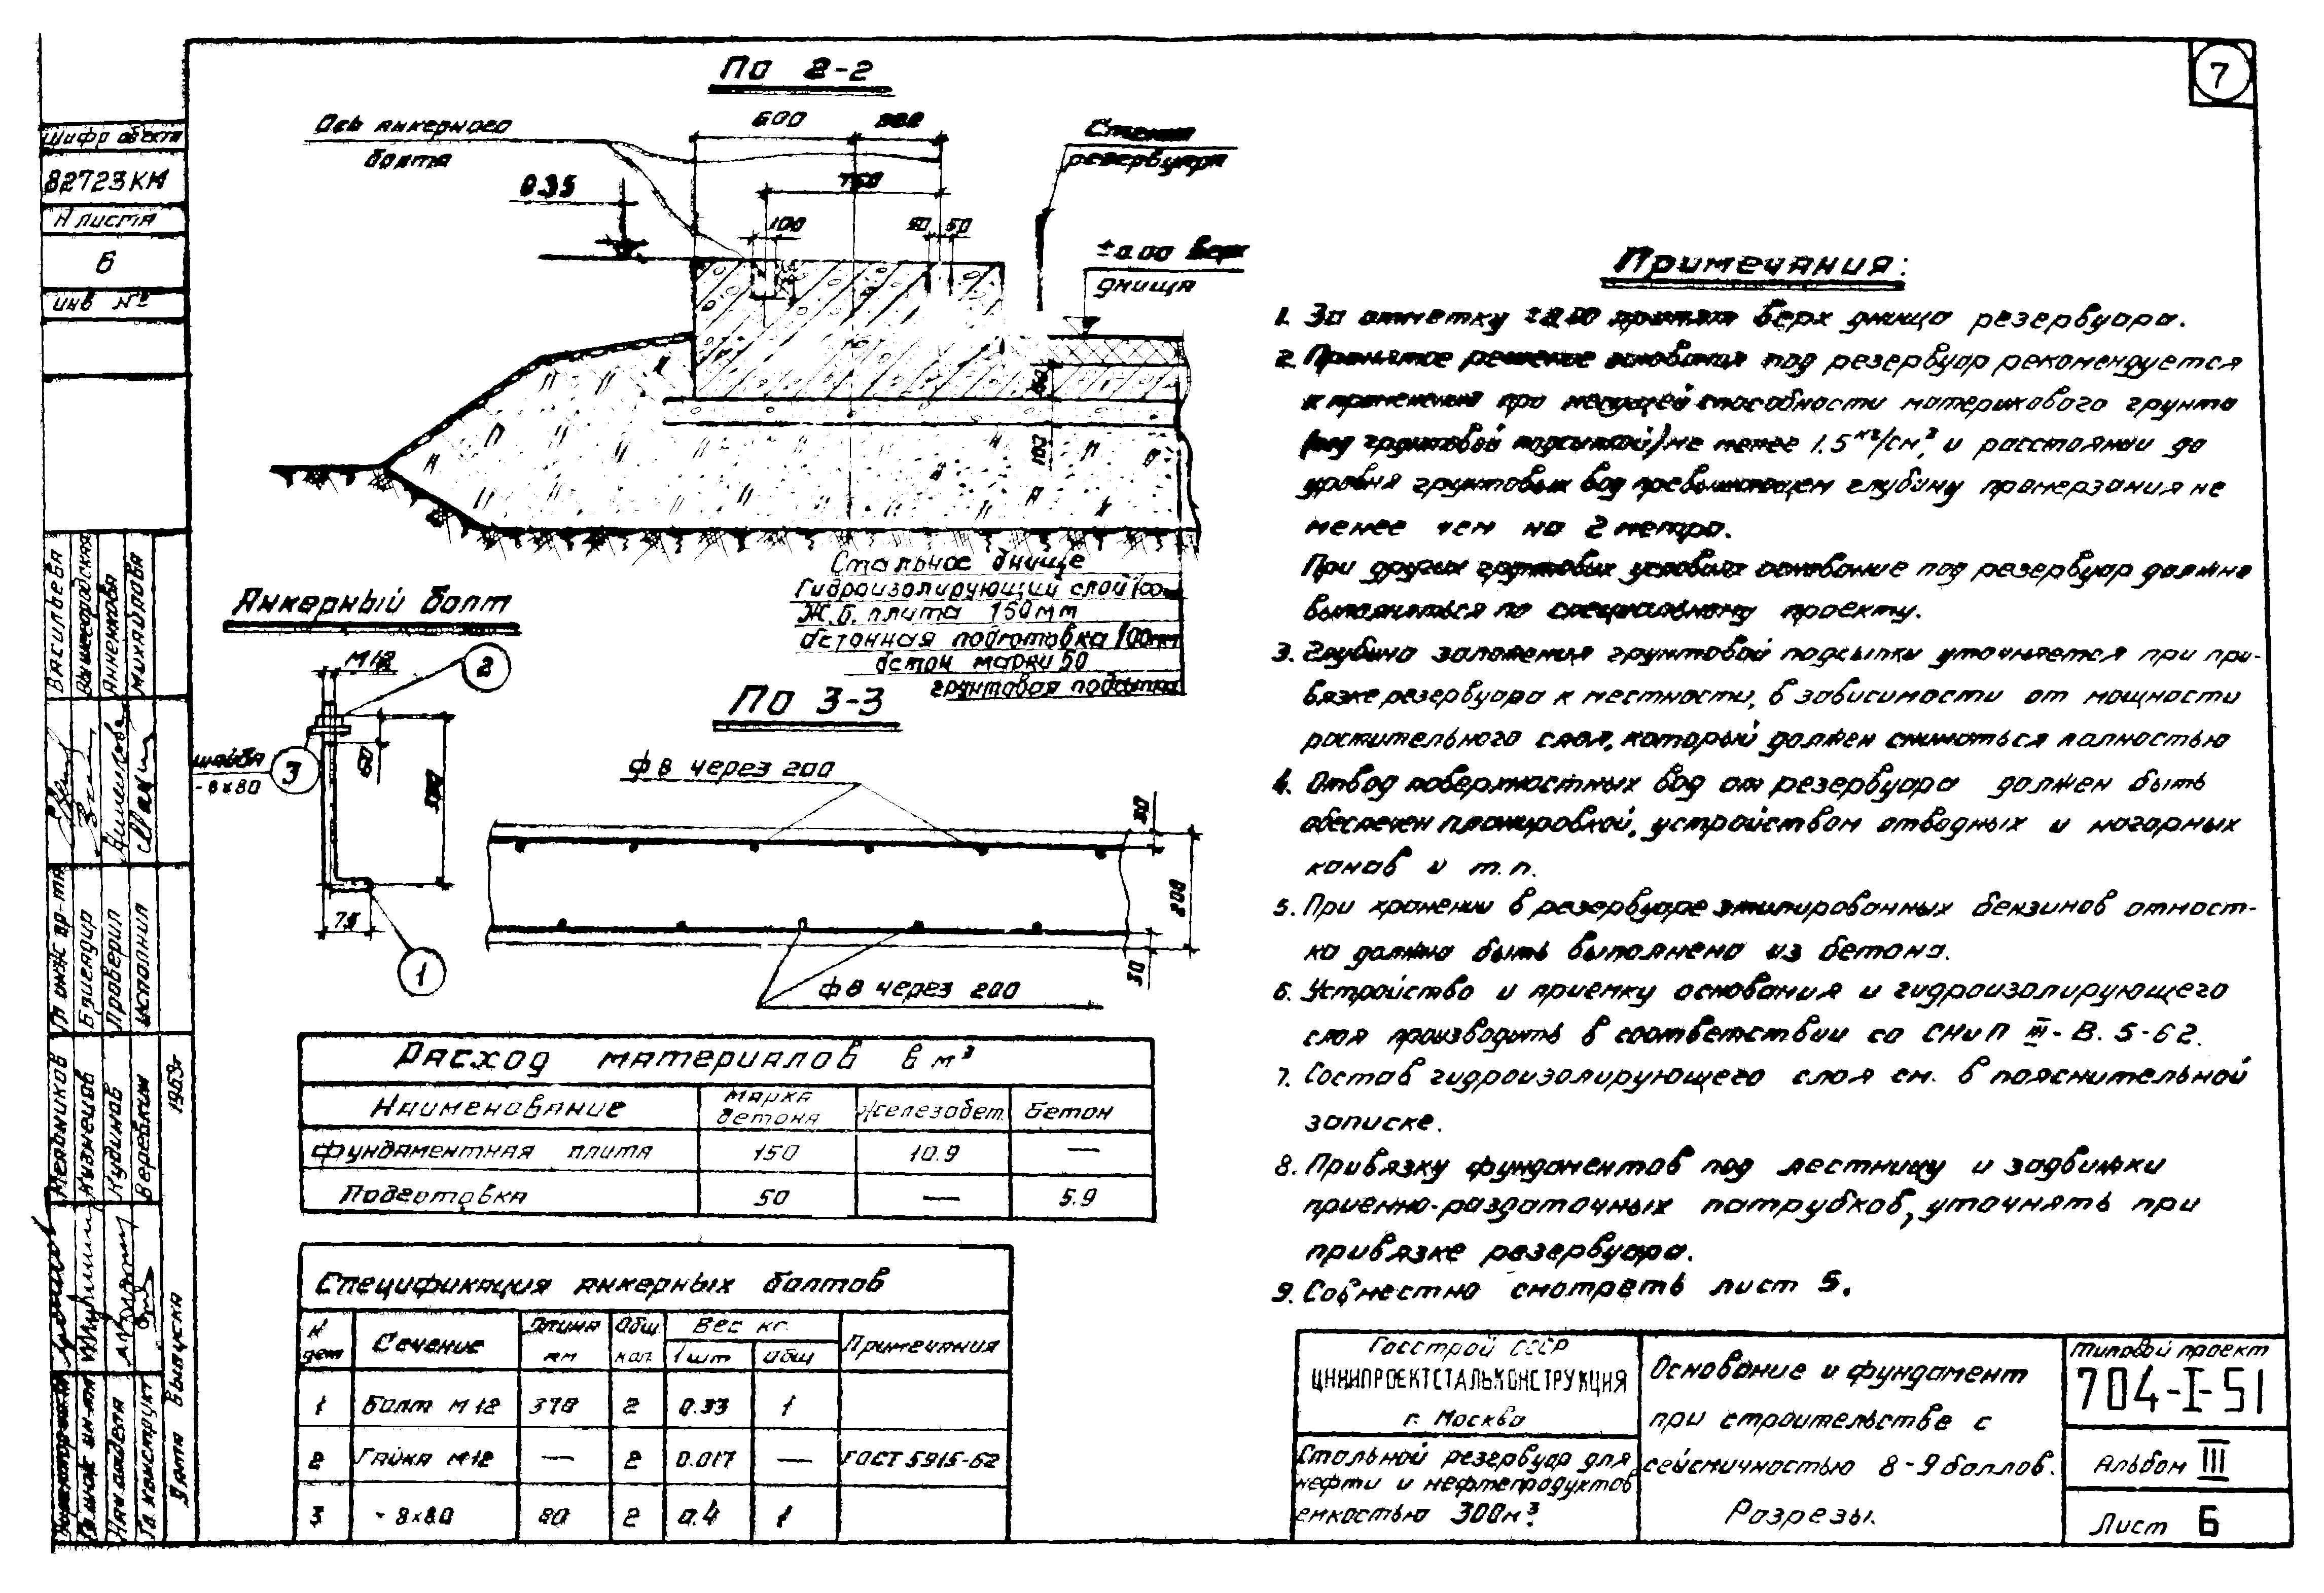 7
По 2-2
Ось анкерного
болта
600
300
Стенка
резервуара
750
0.35
100
50 50
±0.00 верх
днища
100
Стальное днище
Гидроизолирующий слой 100мм
Ж.б. плита 150мм
бетонная подготовка 100мм
бетон марки 50
грунтовая подсыпка
Анкерный болт
М12
2
шайба
-8×80
3
60
300
75
1
По 3-3
ф8 через 200
30
200
30
ф8 через 200
Расход материалов в м³
Наименование
Марка бетона
Железобет.
Бетон
Фундаментная плита 150 10.9 —
Подготовка 50 — 5.9
Спецификация анкерных болтов
N дет
Сечение
Длина мм
Общ кол.
Вес кг.
1шт общ
Примечания
1 Болт М12 370 2 0.33 1
2 Гайка М12 — 2 0.017 — ГОСТ 5915-62
3 -8×80 80 2 0.4 1
Примечания:
1. За отметку ±0.00 принят верх днища резервуара.
2. Принятое решение основания под резервуар рекомендуется
к применению при несущей способности материкового грунта
(под грунтовой подсыпкой) не менее 1.5 кг/см², и расстоянии до
уровня грунтовых вод превышающем глубину промерзания не
менее чем на 2 метра.
При других грунтовых условиях основание под резервуар должно
выполняться по специальному проекту.
3. Глубина заложения грунтовой подсыпки уточняется при при-
вязке резервуара к местности, в зависимости от мощности
растительного слоя, который должен сниматься полностью
4. Отвод поверхностных вод от резервуара должен быть
обеспечен планировкой, устройством отводных и нагорных
канав и т.п.
5. При хранении в резервуаре этилированных бензинов отмост-
ка должна быть выполнена из бетона.
6. Устройство и приемку основания и гидроизолирующего
слоя производить в соответствии со СНиП III-В. 5-62.
7. Состав гидроизолирующего слоя см. в пояснительной
записке.
8. Привязку фундаментов под лестницу и задвижки
приемно-раздаточных патрубков, уточнять при
привязке резервуара.
9. Совместно смотреть лист 5.
Госстрой СССР
ЦНИИПРОЕКТСТАЛЬКОНСТРУКЦИЯ
г. Москва
Стальной резервуар для
нефти и нефтепродуктов
емкостью 300м³.
Основание и фундамент
при строительстве с
сейсмичностью 8-9 баллов.
Разрезы.
Типовой проект
704-I-51
Альбом III
Лист 6
Шифр объекта
82723КМ
N листа
6
инв №
Васильева
Вышегородская
Анненкова
Михайлова
Гл инж пр-та
Бригадир
Проверил
исполнил
Мельников
Кузнецов
Кудинов
Веревкин
1963г
Гл инж ин-та
Нач отдела
Гл конструкт
Дата выпуска